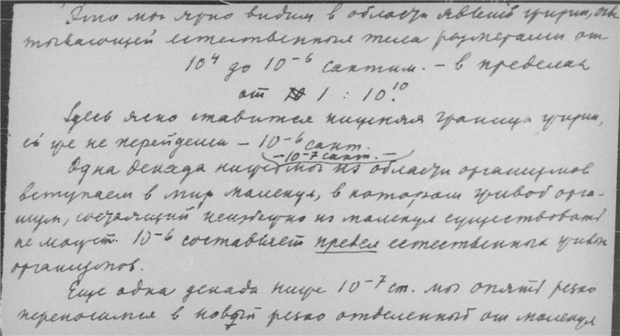 Это мы ярко видим в области явлений жизни, охва
тывающей естественные тела размерами от
10⁴ до 10⁻⁶ сантим. – в пределах
от 1 : 10¹⁰
Здесь ясно ставится нижняя граница жизни,
ей уже не перейдены – 10⁻⁶ сант.
– 10⁻⁷ сант. –
Одна декада ниже мы из области организмов
вступаем в мир молекул, в котором живой орга-
низм, состоящий неизбежно из молекул существовать
не может. 10⁻⁶ составляет предел естественных живых
организмов.
Еще одна декада ниже 10⁻⁷ ст. мы опять резко
переносимся в новый резко отделенный от молекул